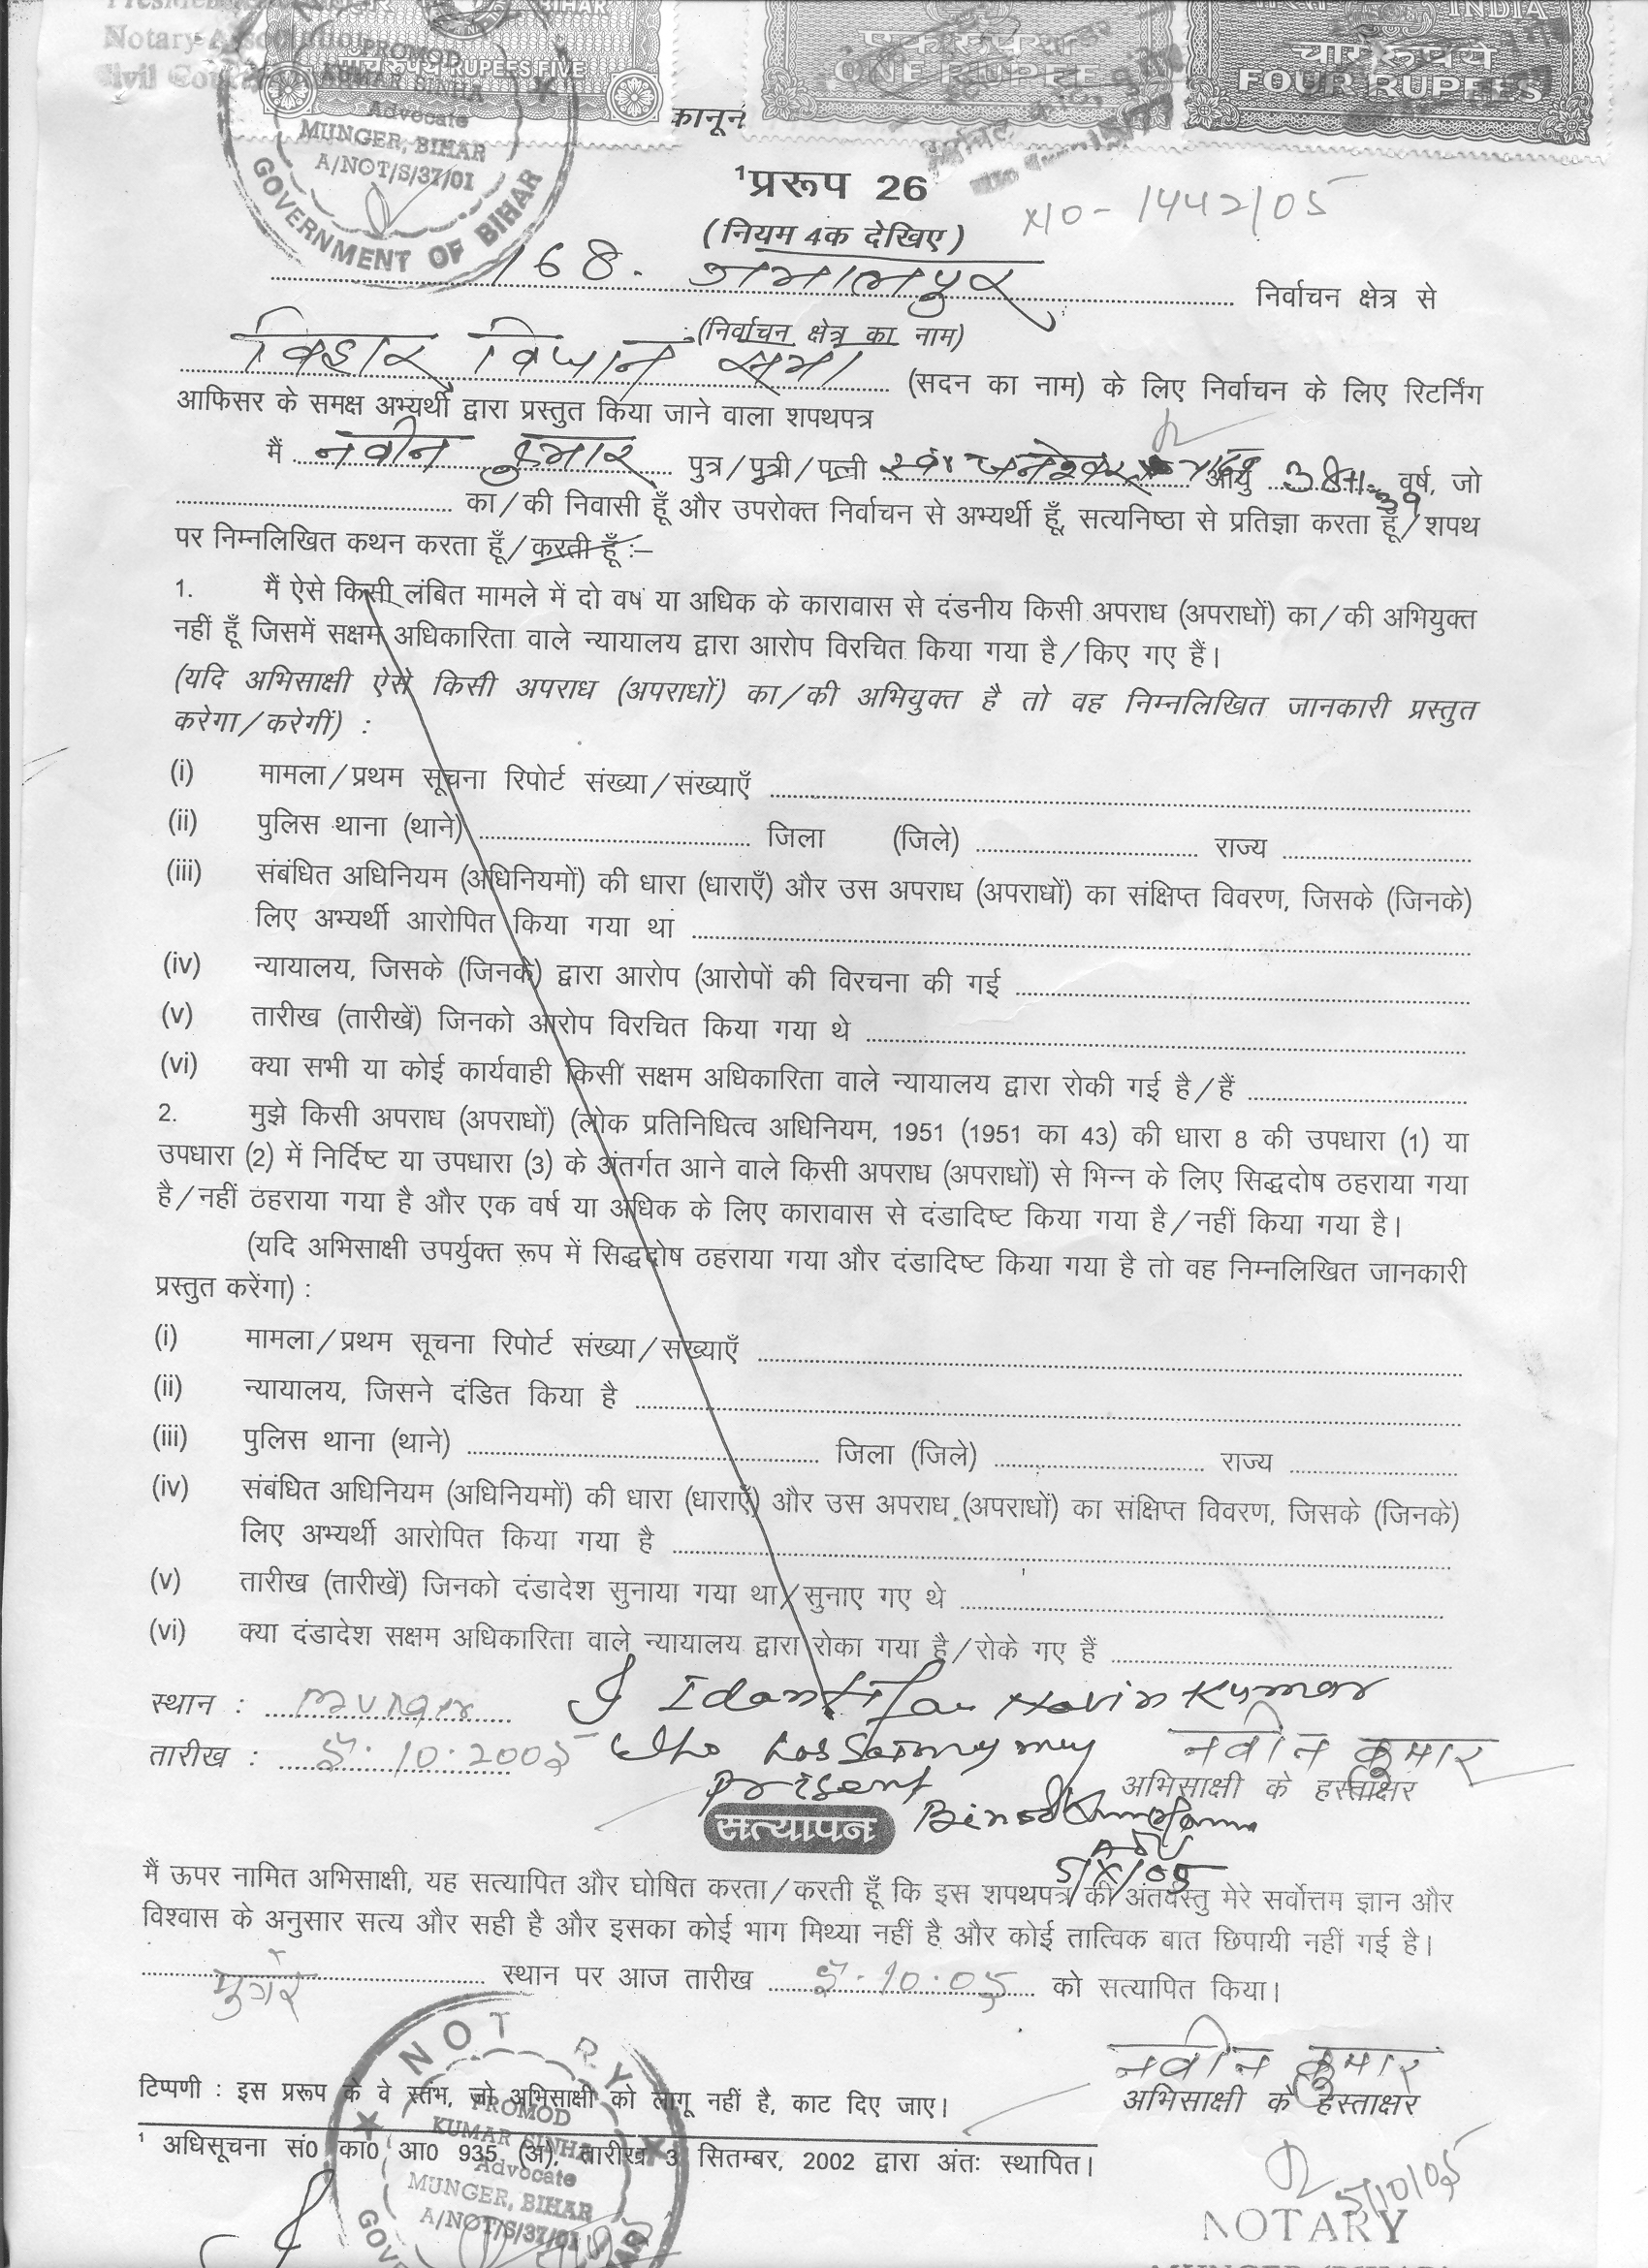 Notary Association
Civil Cou
BIHAR
PROMOD
KUMAR SINHA
Advocate
MUNGER, BIHAR
A/NOT/S/37/01
GOVERNMENT OF BIHAR
पाँच रुपये RUPEES FIVE
एक रुपया
ONE RUPEE
INDIA
चार रुपये
FOUR RUPEES
कानून
¹प्ररूप 26
X10-1442/05
(नियम 4क देखिए)
168. जमालपुर निर्वाचन क्षेत्र से
(निर्वाचन क्षेत्र का नाम)
बिहार विधान सभा (सदन का नाम) के लिए निर्वाचन के लिए रिटर्निंग
आफिसर के समक्ष अभ्यर्थी द्वारा प्रस्तुत किया जाने वाला शपथपत्र
मैं नवीन कुमार पुत्र/पुत्री/पत्नी स्व० जनेश्वर आयु वर्ष, जो
का/की निवासी हूँ और उपरोक्त निर्वाचन से अभ्यर्थी हूँ, सत्यनिष्ठा से प्रतिज्ञा करता हूँ/शपथ
पर निम्नलिखित कथन करता हूँ/करती हूँ :–
1. मैं ऐसे किसी लंबित मामले में दो वर्ष या अधिक के कारावास से दंडनीय किसी अपराध (अपराधों) का/की अभियुक्त
नहीं हूँ जिसमें सक्षम अधिकारिता वाले न्यायालय द्वारा आरोप विरचित किया गया है/किए गए हैं।
(यदि अभिसाक्षी ऐसे किसी अपराध (अपराधों) का/की अभियुक्त है तो वह निम्नलिखित जानकारी प्रस्तुत
करेगा/करेगीं) :
(i) मामला/प्रथम सूचना रिपोर्ट संख्या/संख्याएँ
(ii) पुलिस थाना (थाने) जिला (जिले) राज्य
(iii) संबंधित अधिनियम (अधिनियमों) की धारा (धाराएँ) और उस अपराध (अपराधों) का संक्षिप्त विवरण, जिसके (जिनके)
लिए अभ्यर्थी आरोपित किया गया था
(iv) न्यायालय, जिसके (जिनके) द्वारा आरोप (आरोपों की विरचना की गई
(v) तारीख (तारीखें) जिनको आरोप विरचित किया गया थे
(vi) क्या सभी या कोई कार्यवाही किसी सक्षम अधिकारिता वाले न्यायालय द्वारा रोकी गई है/हैं
2. मुझे किसी अपराध (अपराधों) (लोक प्रतिनिधित्व अधिनियम, 1951 (1951 का 43) की धारा 8 की उपधारा (1) या
उपधारा (2) में निर्दिष्ट या उपधारा (3) के अंतर्गत आने वाले किसी अपराध (अपराधों) से भिन्न के लिए सिद्धदोष ठहराया गया
है/नहीं ठहराया गया है और एक वर्ष या अधिक के लिए कारावास से दंडादिष्ट किया गया है/नहीं किया गया है।
(यदि अभिसाक्षी उपर्युक्त रूप में सिद्धदोष ठहराया गया और दंडादिष्ट किया गया है तो वह निम्नलिखित जानकारी
प्रस्तुत करेंगा) :
(i) मामला/प्रथम सूचना रिपोर्ट संख्या/संख्याएँ
(ii) न्यायालय, जिसने दंडित किया है
(iii) पुलिस थाना (थाने) जिला (जिले) राज्य
(iv) संबंधित अधिनियम (अधिनियमों) की धारा (धाराएँ) और उस अपराध (अपराधों) का संक्षिप्त विवरण, जिसके (जिनके)
लिए अभ्यर्थी आरोपित किया गया है
(v) तारीख (तारीखें) जिनको दंडादेश सुनाया गया था/सुनाए गए थे
(vi) क्या दंडादेश सक्षम अधिकारिता वाले न्यायालय द्वारा रोका गया है/रोके गए हैं
स्थान : Munger I Navin Kumar
तारीख : 5.10.2005 नवीन कुमार
present अभिसाक्षी के हस्ताक्षर
सत्यापन
5/X/05
मैं ऊपर नामित अभिसाक्षी, यह सत्यापित और घोषित करता/करती हूँ कि इस शपथपत्र की अंतर्वस्तु मेरे सर्वोत्तम ज्ञान और
विश्वास के अनुसार सत्य और सही है और इसका कोई भाग मिथ्या नहीं है और कोई तात्विक बात छिपायी नहीं गई है।
मुंगेर स्थान पर आज तारीख 5.10.05 को सत्यापित किया।
नवीन कुमार
अभिसाक्षी के हस्ताक्षर
टिप्पणी : इस प्ररूप के वे स्तंभ, जो अभिसाक्षी को लागू नहीं है, काट दिए जाए।
¹ अधिसूचना सं0 का0 आ0 935 (अ), तारीख 3 सितम्बर, 2002 द्वारा अंतः स्थापित।
NOTARY
PROMOD
KUMAR SINHA
Advocate
MUNGER, BIHAR
A/NOT/S/37/01
5/10/05
NOTARY